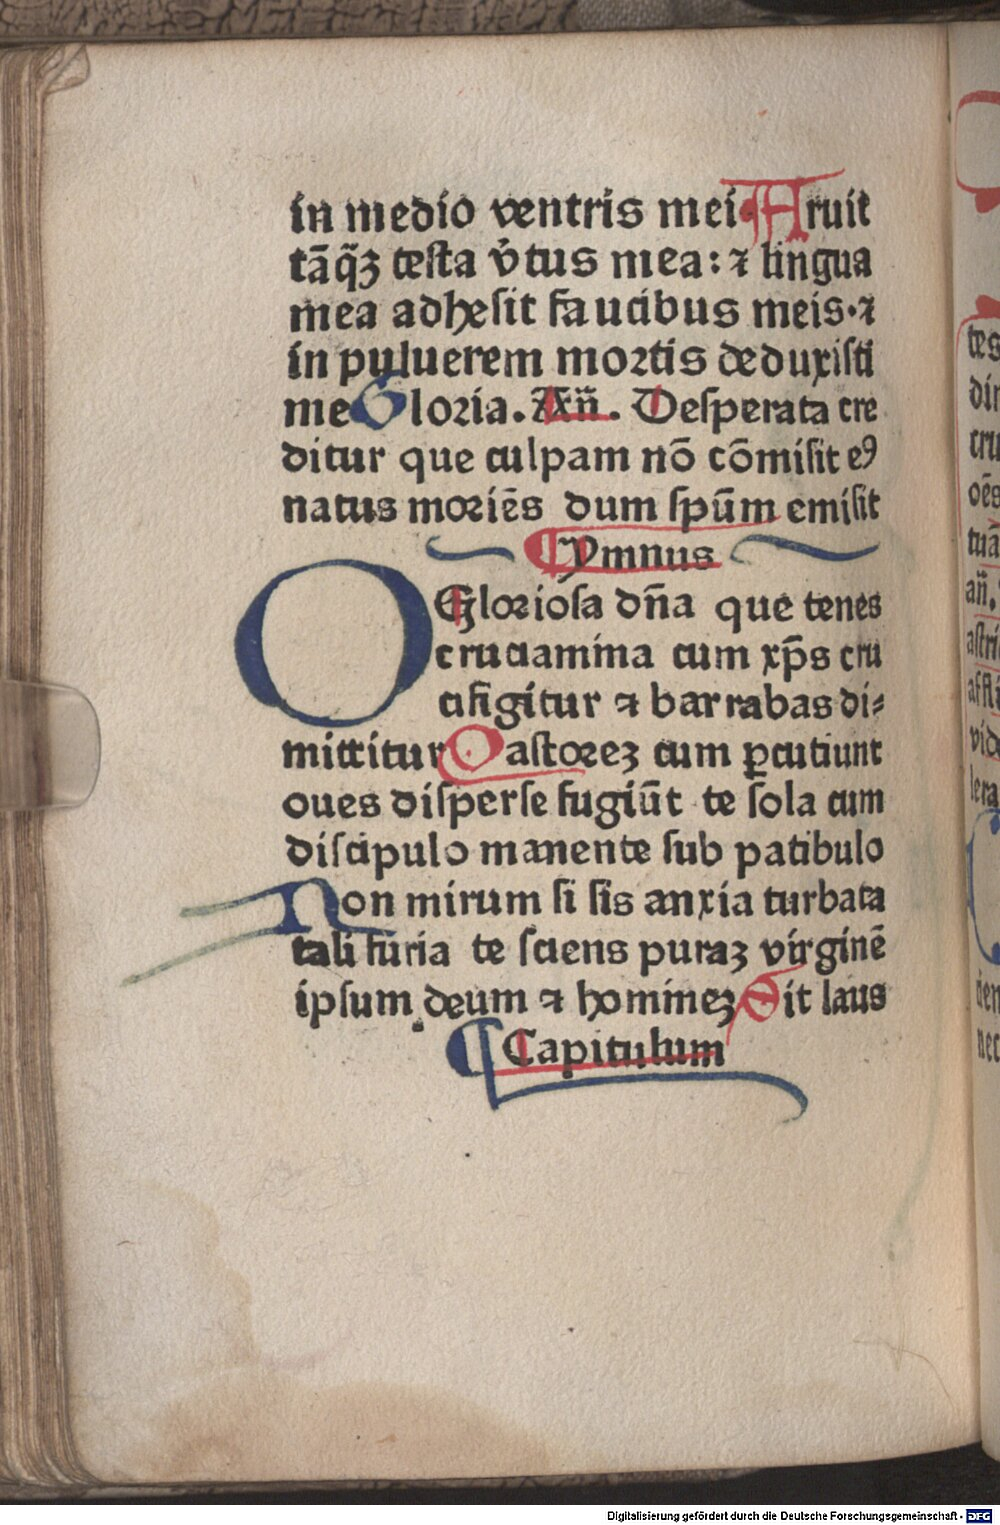 in medio ventris mei Aruit
tāq̄ꝫ testa v̓tus mea: ⁊ lingua
mea adhesit faucibus meis.⁊
in puluerem mortis deduxisti
me Gloria. Añ. Desperata cre
ditur que culpam nō cōmisit eꝰ
natus moriēs dum spūm emisit
Ymnus
O Gloriosa dña que tenes
cruciamina cum xp̄s cru
cifigitur ⁊ barrabas di⸗
mittitur Pastoreꝫ cum ꝑcutiunt
oues disperse fugiūt te sola cum
discipulo manente sub patibulo
Non mirum si sis anxia turbata
tali furia te sciens puraꝫ virginē
ipsum deum ⁊ homineꝫ Sit laus
Capitulum
tes
dir
cru
oēs
tuā
añ.
astri
affli
vid
lera
den
nec
Digitalisierung gefördert durch die Deutsche Forschungsgemeinschaft - DFG